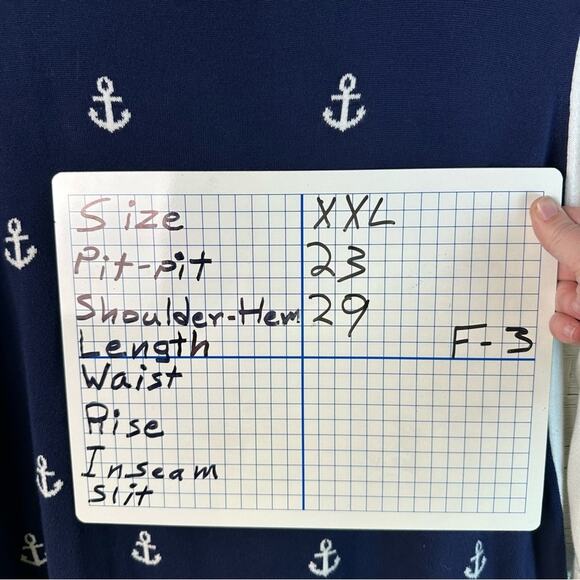 Size XXL
Pit-pit 23
Shoulder-Hem 29
Length F-3
Waist
Rise
Inseam
slit